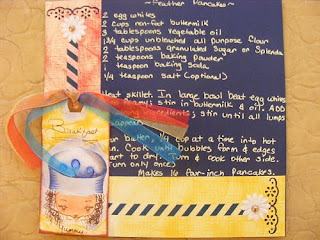 ~Feather Pancakes~
2 egg whites
2 cups non-fat buttermilk
3 tablespoons vegetable oil
1 3/4 cups unbleached all purpose flour
2 tablespoons granulated Sugar or Splenda
2 teaspoons baking powder
1 teaspoon baking Soda
1/4 teaspoon salt (optional)
Heat skillet. In large bowl beat egg whites
foamy; stir in buttermilk & oil. ADD
ingredients; stir until all lumps
disappear.
batter, 1/4 cup at a time into hot
pan. Cook until bubbles form & edges
start to dry. Turn & cook other side.
(Turn only once)
Makes 16 four-inch Pancakes.
Breakfast